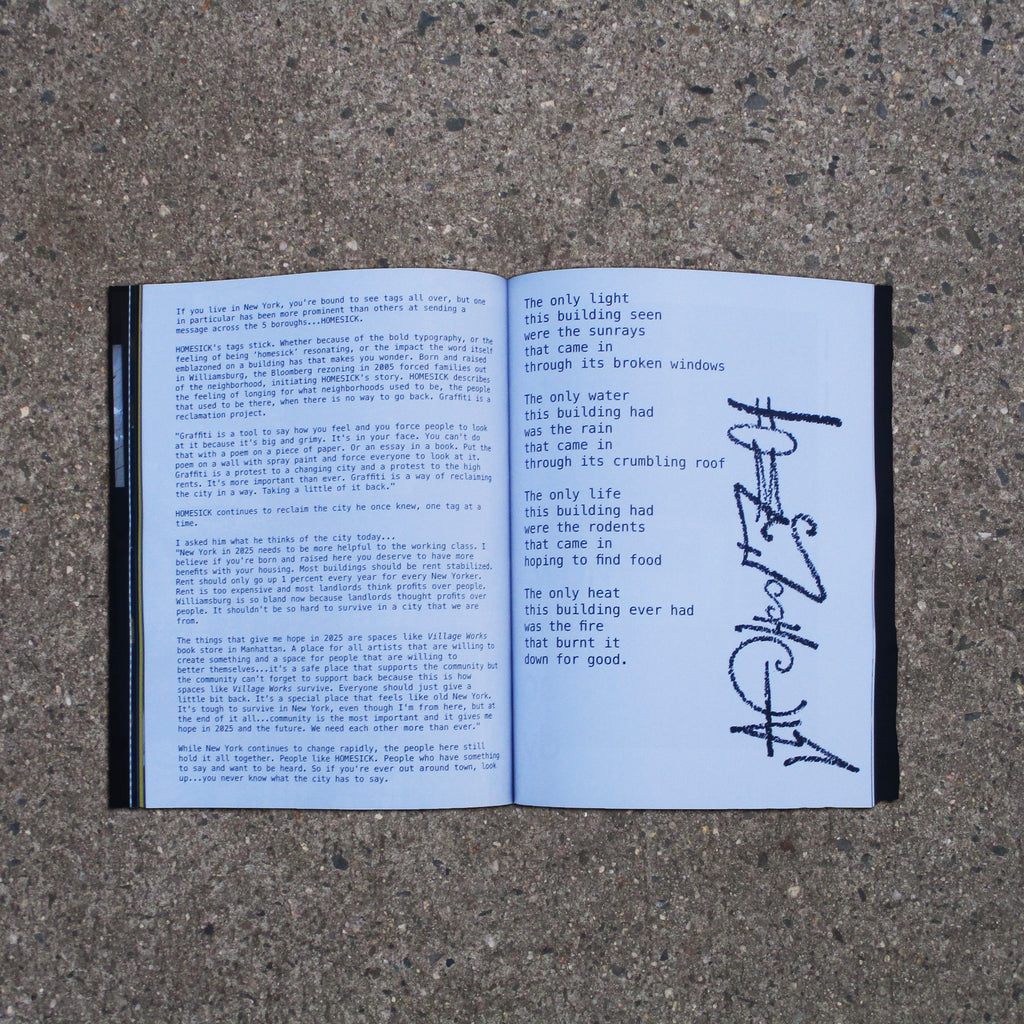 If you live in New York, you're bound to see tags all over, but one
in particular has been more prominent than others at sending a
message across the 5 boroughs...HOMESICK.
HOMESICK's tags stick. Whether because of the bold typography, or the
feeling of being 'homesick' resonating, or the impact the word itself
emblazoned on a building has that makes you wonder. Born and raised
in Williamsburg, the Bloomberg rezoning in 2005 forced families out
of the neighborhood, initiating HOMESICK's story. HOMESICK describes
the feeling of longing for what neighborhoods used to be, the people
that used to be there, when there is no way to go back. Graffiti is a
reclamation project.
"Graffiti is a tool to say how you feel and you force people to look
at it because it's big and grimy. It's in your face. You can't do
that with a poem on a piece of paper. Or an essay in a book. Put the
poem on a wall with spray paint and force everyone to look at it.
Graffiti is a protest to a changing city and a protest to the high
rents. It's more important than ever. Graffiti is a way of reclaiming
the city in a way. Taking a little of it back."
HOMESICK continues to reclaim the city he once knew, one tag at a
time.
I asked him what he thinks of the city today...
"New York in 2025 needs to be more helpful to the working class. I
believe if you're born and raised here you deserve to have more
benefits with your housing. Most buildings should be rent stabilized.
Rent should only go up 1 percent every year for every New Yorker.
Rent is too expensive and most landlords think profits over people.
Williamsburg is so bland now because landlords thought profits over
people. It shouldn't be so hard to survive in a city that we are
from.
The things that give me hope in 2025 are spaces like Village Works
book store in Manhattan. A place for all artists that are willing to
create something and a space for people that are willing to
better themselves...it's a safe place that supports the community but
the community can't forget to support back because this is how
spaces like Village Works survive. Everyone should just give a
little bit back. It's a special place that feels like old New York.
It's tough to survive in New York, even though I'm from here, but at
the end of it all...community is the most important and it gives me
hope in 2025 and the future. We need each other more than ever."
While New York continues to change rapidly, the people here still
hold it all together. People like HOMESICK. People who have something
to say and want to be heard. So if you're ever out around town, look
up...you never know what the city has to say.
The only light
this building seen
were the sunrays
that came in
through its broken windows
The only water
this building had
was the rain
that came in
through its crumbling roof
The only life
this building had
were the rodents
that came in
hoping to find food
The only heat
this building ever had
was the fire
that burnt it
down for good.